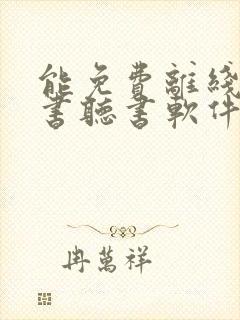 能免費離綫
書聽書軟件
冉萬祥